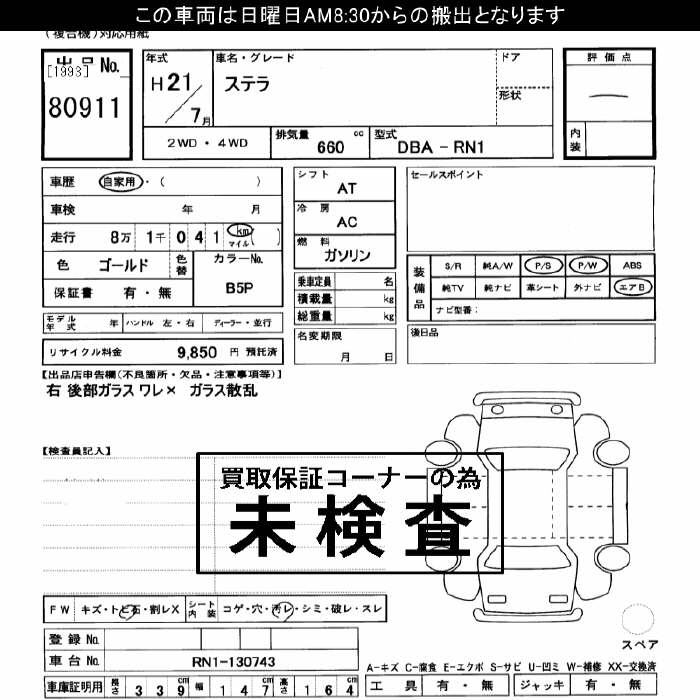 この車両は日曜日AM8:30からの搬出となります
(複合機)対応用紙
出品 No.
[1993]
80911
年式
H21/7月
車名・グレード
ステラ
ドア
形状
評価点
内装
2WD・4WD
排気量 cc
660
型式
DBA-RN1
車歴 自家用・( )
車検 年 月
走行 8万 1千 0 4 1 km マイル ( )
色 ゴールド 色替
カラーNo.
B5P
保証書 有・無
シフト
AT
冷房
AC
燃料
ガソリン
乗車定員 名
積載量 kg
総重量 kg
名変期限
月 日
セールスポイント
装備品
S/R 純A/W P/S P/W ABS
純TV 純ナビ 革シート 外ナビ エアB
ナビ型番:
後日品
モデル年式 年 ハンドル 左・右 ディーラー・並行
リサイクル料金 9,850 円 預託済
【出品店申告欄(不良箇所・欠品・注意事項等)】
右 後部ガラス ワレ× ガラス散乱
【検査員記入】
買取保証コーナーの為
未検査
FW キズ・トビ石・割レX シート内装 コゲ・穴・汚レ・シミ・破レ・スレ
登録No.
車台No. RN1-130743
車庫証明用 長さ 339cm 幅 147cm 高さ 164cm
スペア
A-キズ C-腐食 E-エクボ S-サビ U-凹ミ W-補修 XX-交換済
工具 有・無 ジャッキ 有・無